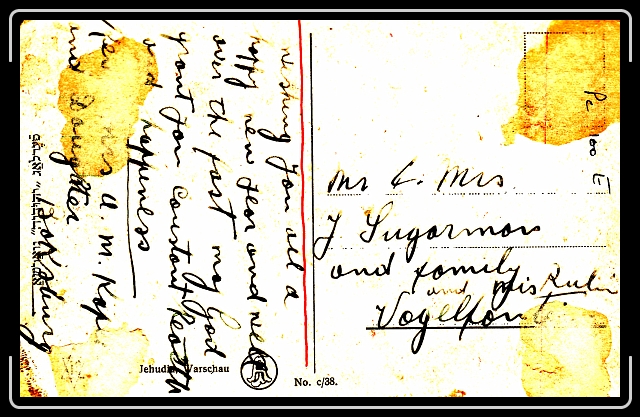 wishing you all a
happy new year and well
over the fast may God
grant you constant health
and happiness
Mrs A. M. Kap
and Daughter
Mr & Mrs
J Sugarman
and family
and Miss Rubin
Vogelfon
Jehudia, Warschau
No. c/38.
Pc 100